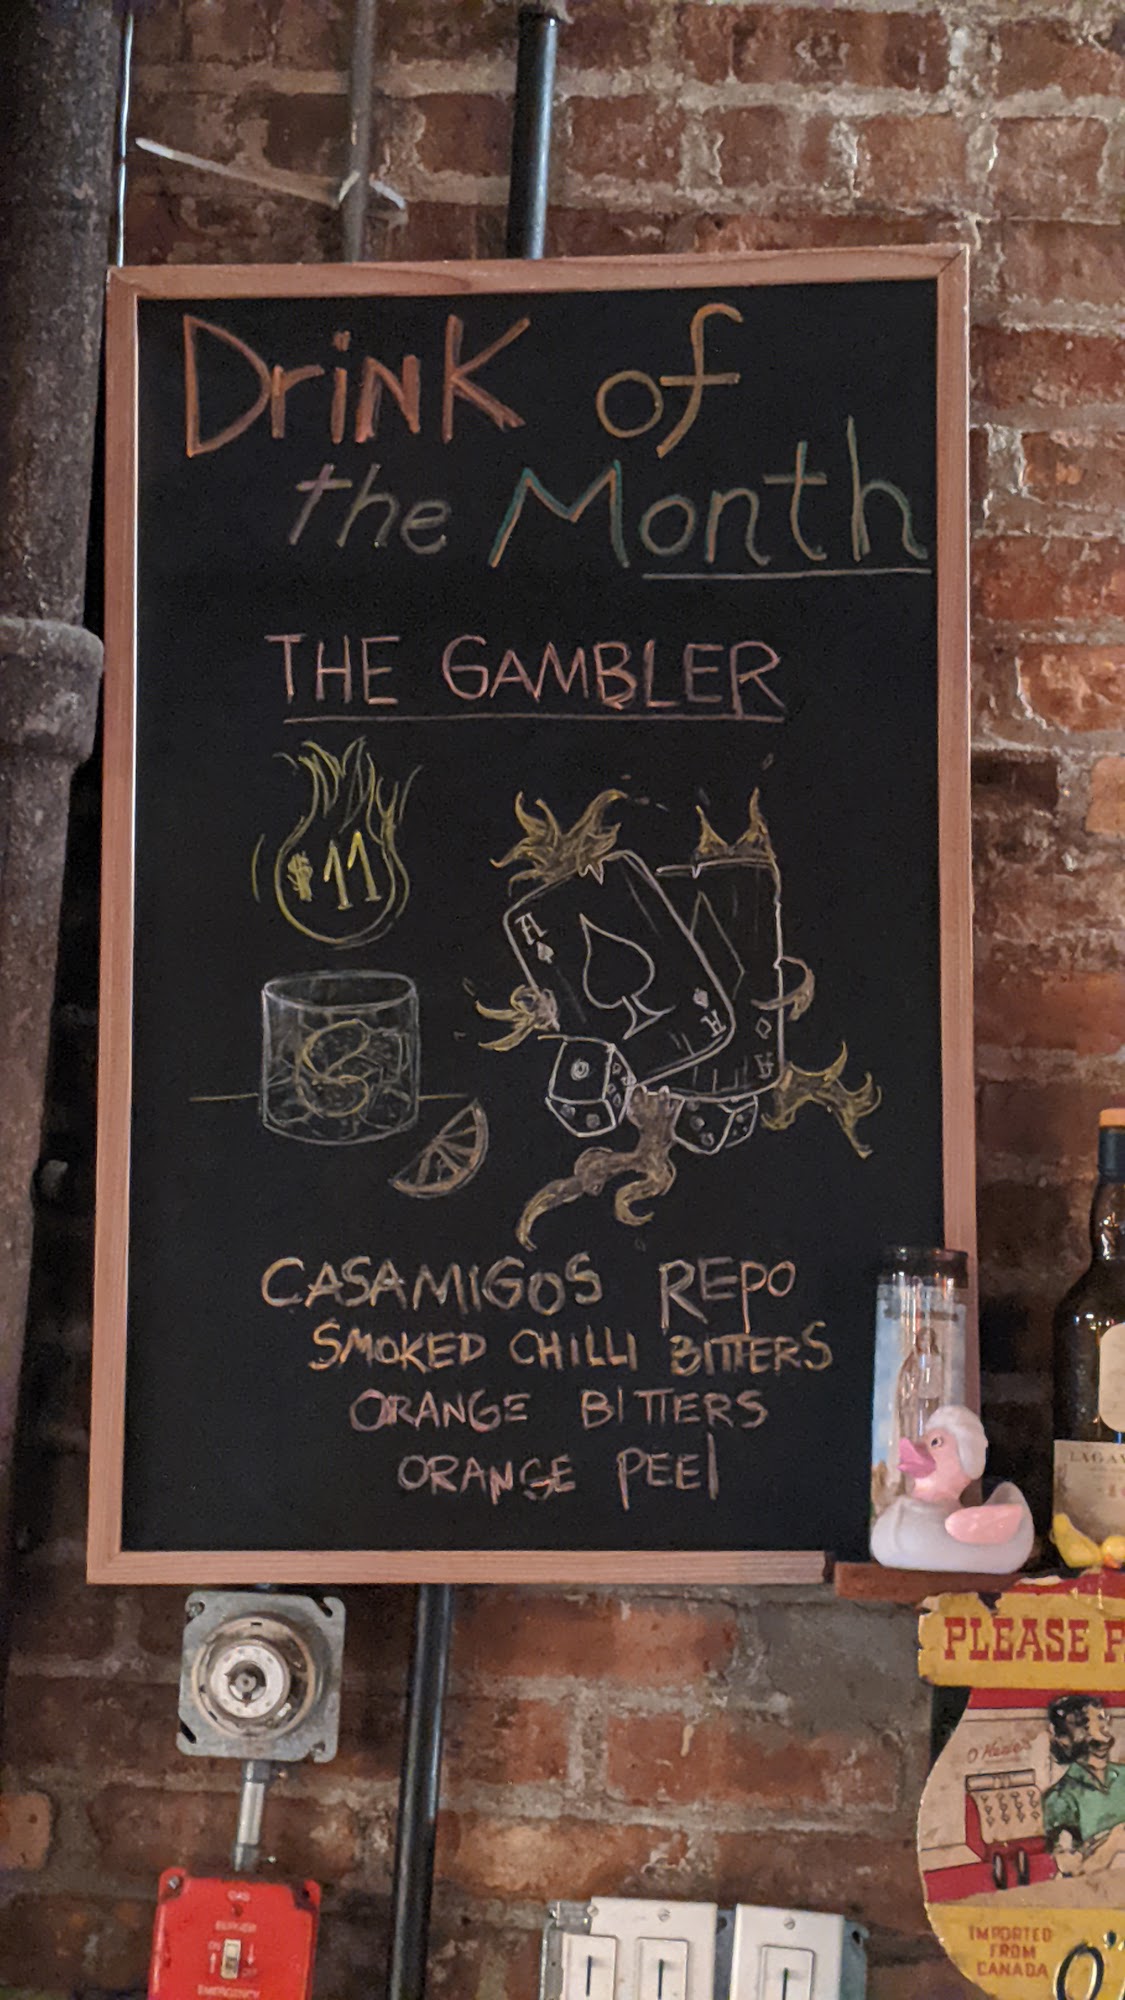 Drink of
the Month
THE GAMBLER
$11
A
A
A
CASAMIGOS REPO
SMOKED CHILLI BITTERS
ORANGE BITTERS
ORANGE PEEL
PLEASE
IMPORTED
FROM
CANADA
GAS
BURNER
ON
OFF
EMERGENCY